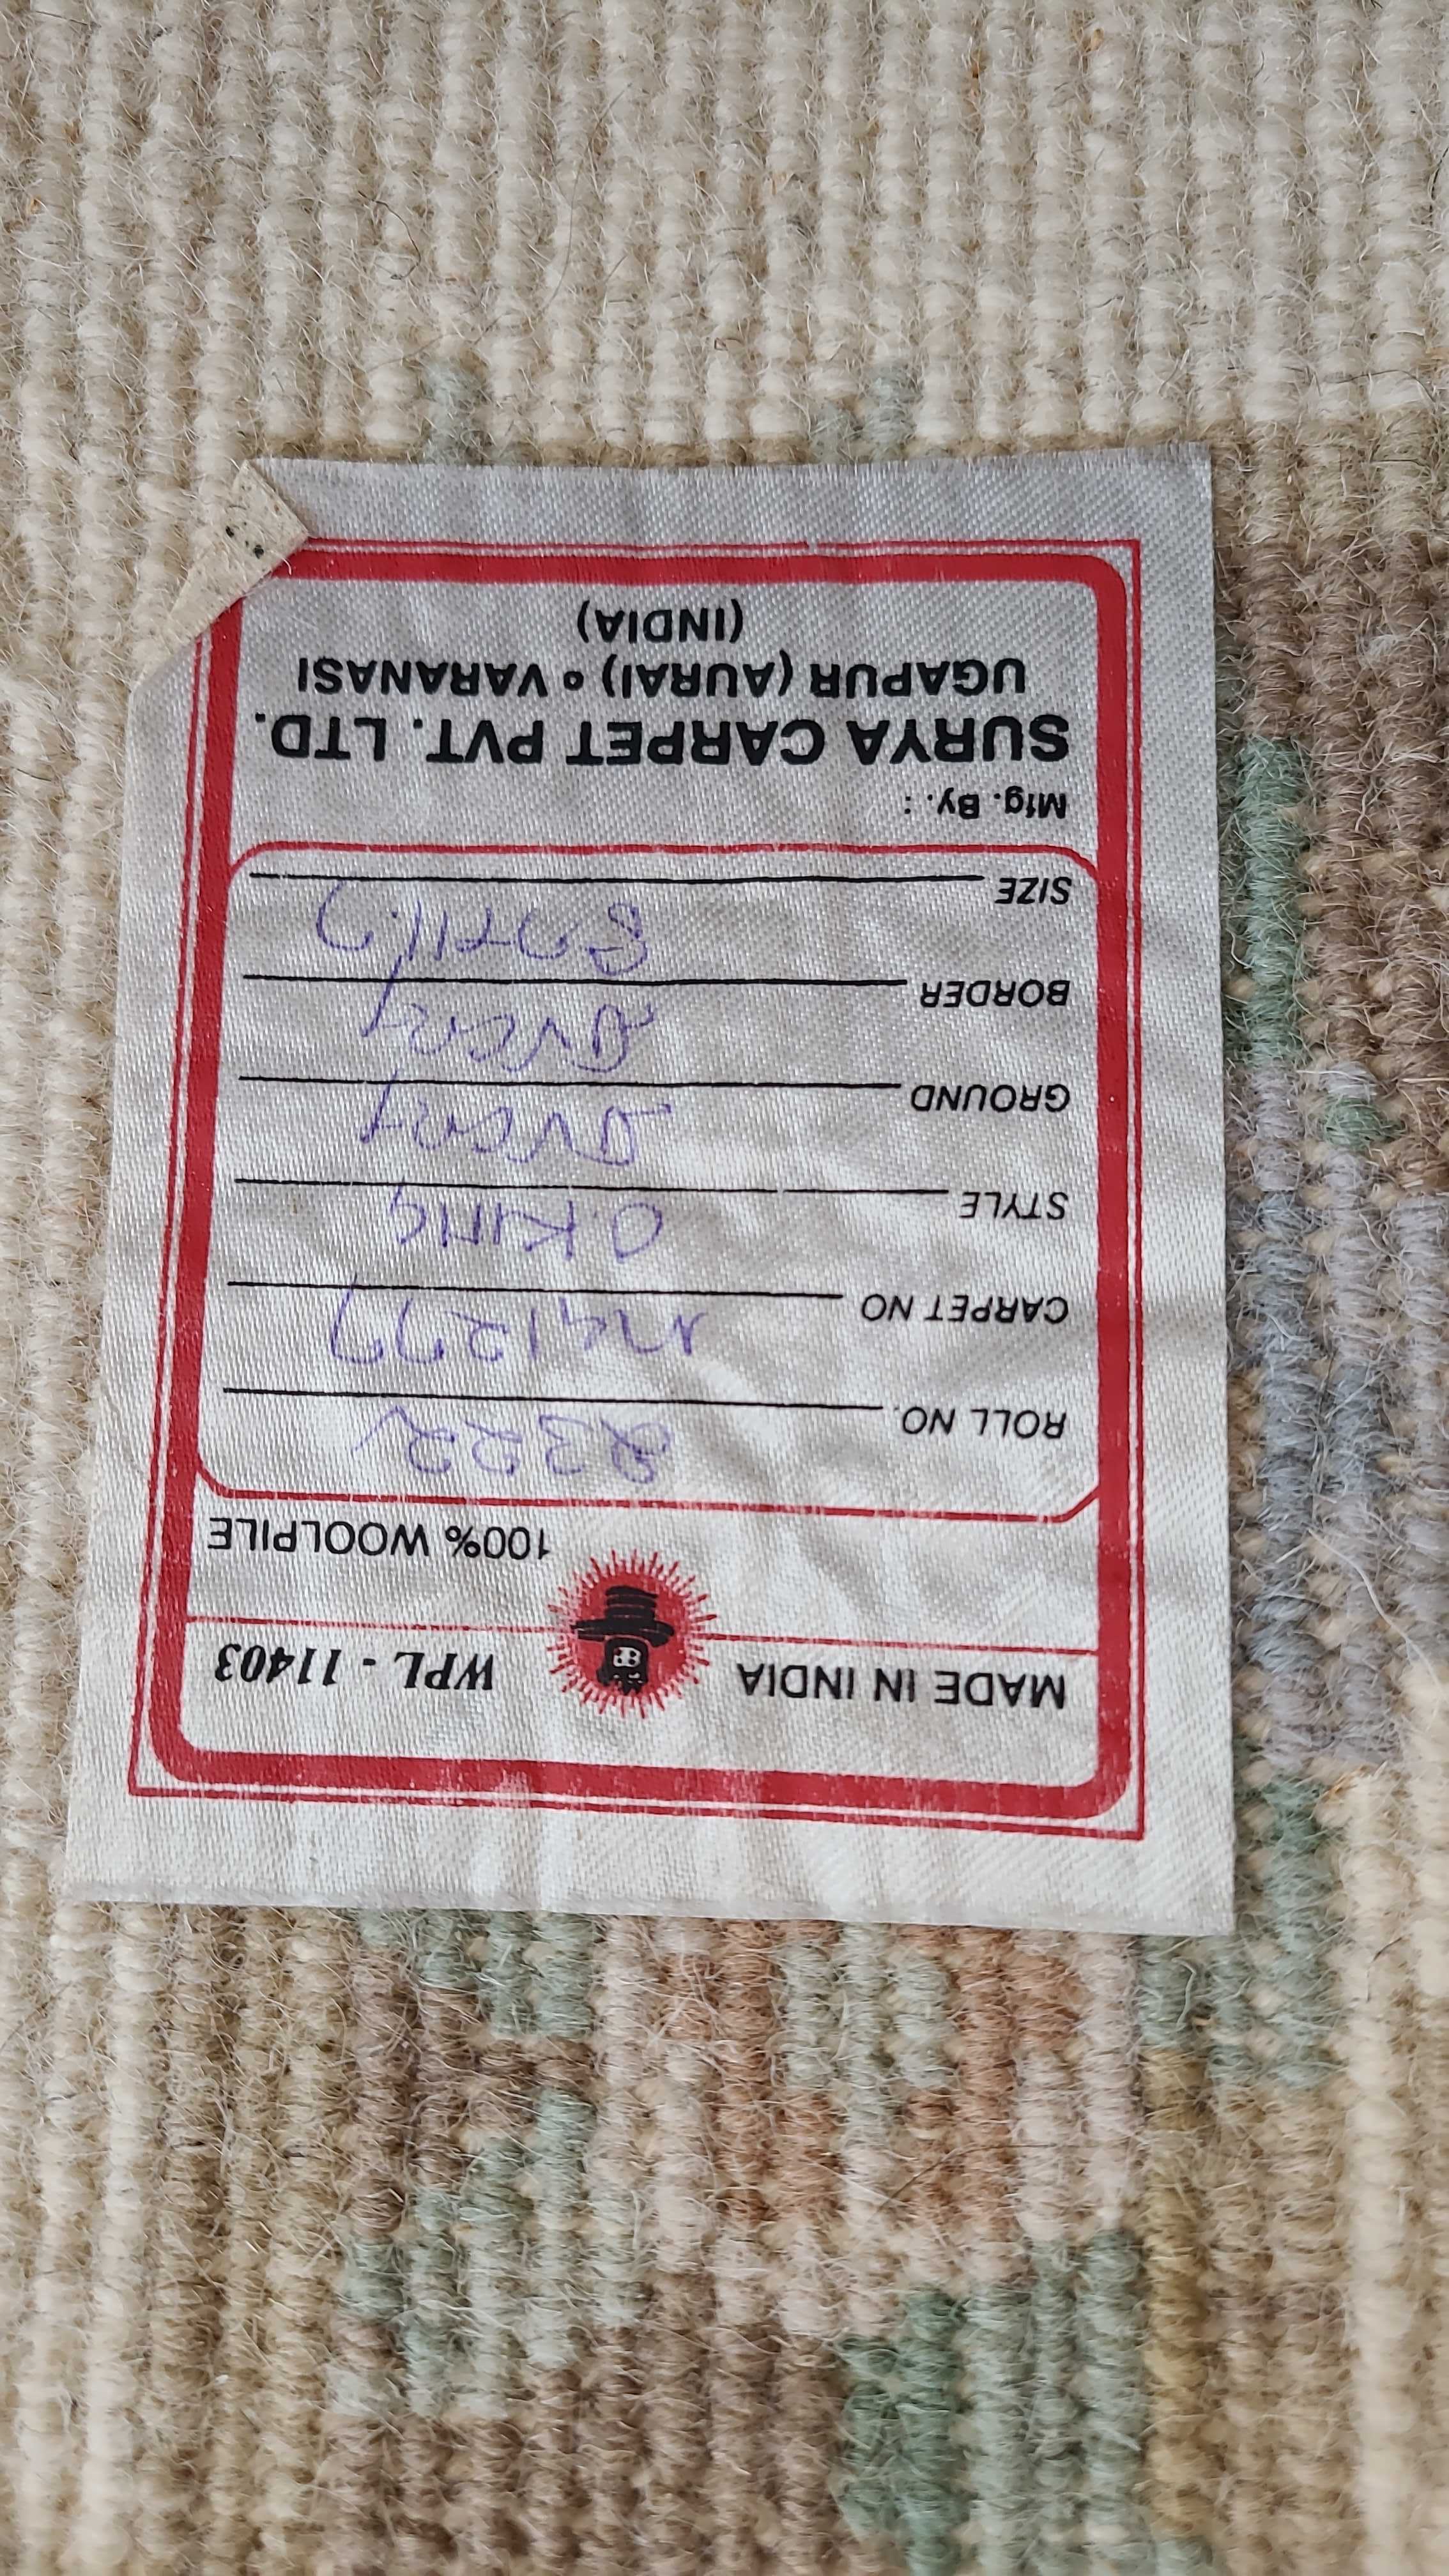 MADE IN INDIA WPL - 11403
100% WOOLPILE
ROLL NO. 2322
CARPET NO
STYLE O.KING
GROUND
BORDER
SIZE
Mfg. By. :
SURYA CARPET PVT. LTD.
UGAPUR (AURAI) ∘ VARANASI
(INDIA)